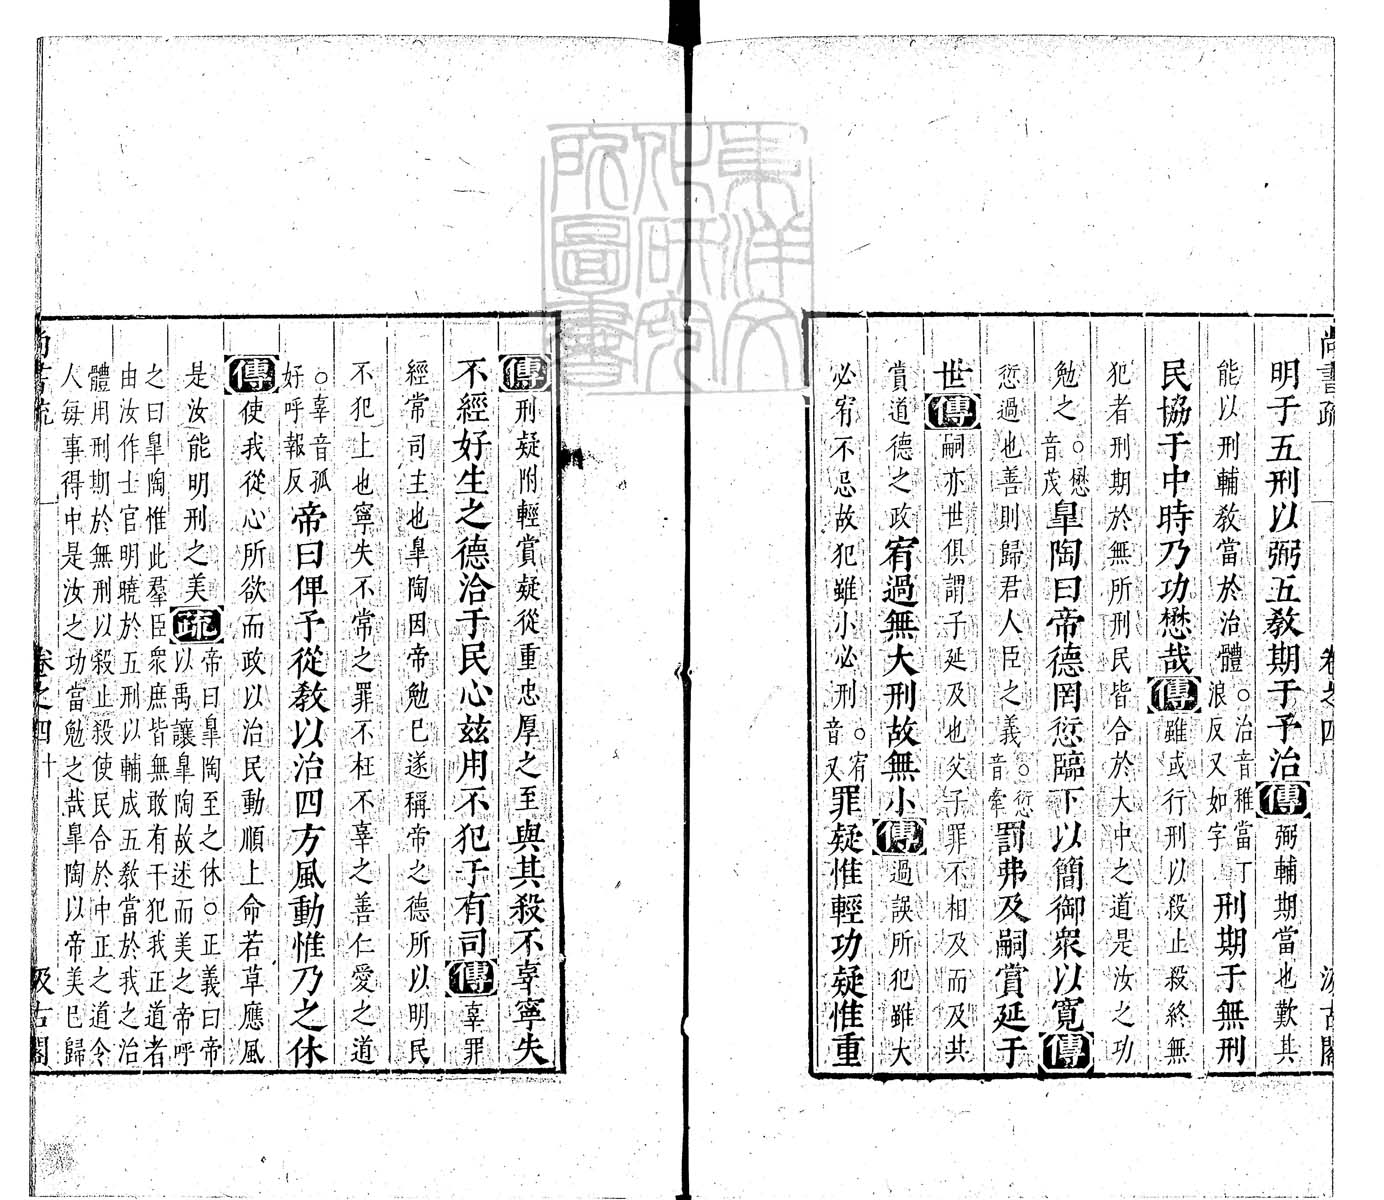 尚書疏 卷之四 汲古閣
明于五刑以弼五敎期于予治傳弼輔期當也歎其
能以刑輔敎當於治體○治音稚當丁浪反又如字刑期于無刑
民協于中時乃功懋哉傳雖或行刑以殺止殺終無
犯者刑期於無所刑民皆合於大中之道是汝之功
勉之○懋音茂皐陶曰帝德罔愆臨下以簡御衆以寬傳
愆過也善則歸君人臣之義○愆音牽罰弗及嗣賞延于
世傳嗣亦世俱謂子延及也父子罪不相及而及其
賞道德之政宥過無大刑故無小傳過誤所犯雖大
必宥不忌故犯雖小必刑○宥音又罪疑惟輕功疑惟重
傳刑疑附輕賞疑從重忠厚之至與其殺不辜寧失
不經好生之德洽于民心茲用不犯于有司傳辜罪
經常司主也皐陶因帝勉已遂稱帝之德所以明民
不犯上也寧失不常之罪不枉不辜之善仁愛之道
○辜音孤好呼報反帝曰俾予從欲以治四方風動惟乃之休
傳使我從心所欲而政以治民動順上命若草應風
是汝能明刑之美疏帝曰皐陶至之休○正義曰帝以禹讓皐陶故述而美之帝呼
之曰皐陶惟此羣臣衆庶皆無敢有干犯我正道者
由汝作士官明曉於五刑以輔成五敎當於我之治
體用刑期於無刑以殺止殺使民合於中正之道令
人每事得中是汝之功當勉之哉皐陶以帝美已歸
尚書疏 卷之四 十 汲古閣
東洋文化研究所圖書